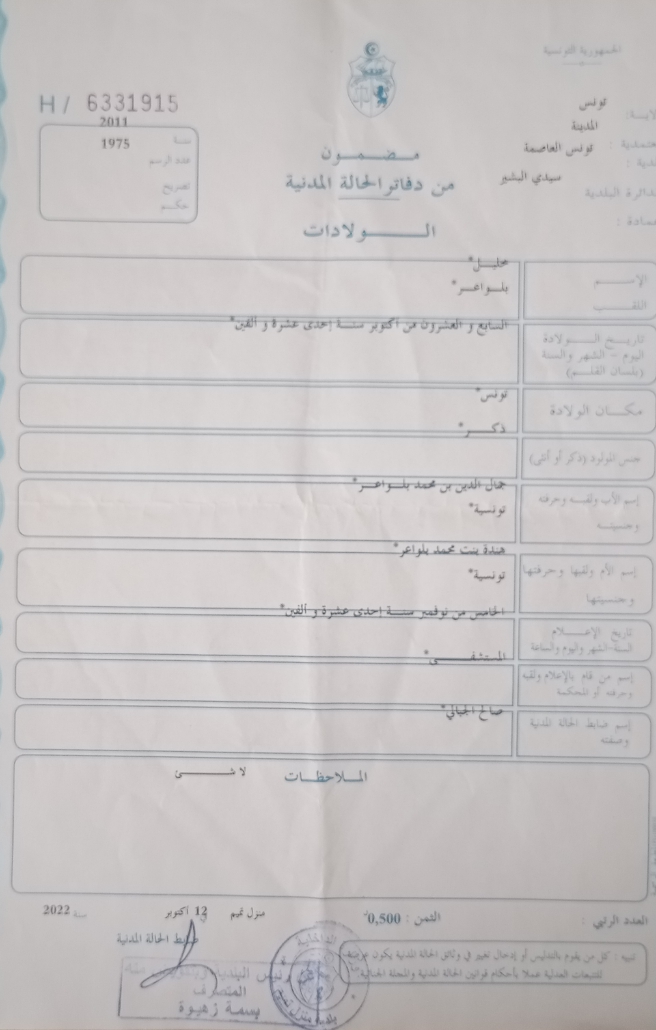 الجمهورية التونسية
H / 6331915
تونس
المدينة
تونس العاصمة
سيدي البشير
الدائرة البلدية
2011
سنة
1975
عدد الرسم
تصريح
حكم
مضمون
من دفاتر الحالة المدنية
الولادات
الإسم
خليل*
اللقب
بلواعر*
تاريخ الولادة
اليوم - الشهر والسنة
(بلسان القلم)
السابع و العشرون من أكتوبر سنة إحدى عشرة و ألفين*
مكان الولادة
تونس*
جنس المولود (ذكر أو أنثى)
ذكر*
إسم الأب ولقبه وحرفته
وجنسيته
جمال الدين بن محمد بلواعر*
تونسية*
إسم الأم ولقبها وحرفتها
وجنسيتها
هندة بنت محمد بلواعر*
تونسية*
تاريخ الإعلام
السنة-الشهر واليوم والساعة
الخامس من نوفمبر سنة إحدى عشرة و ألفين*
إسم من قام بالإعلام ولقبه
وحرفته أو المحكمة
المستشفى*
إسم ضابط الحالة المدنية
وصفته
صالح الجبالي*
الملاحظات
لا شئ
العدد الرتبي :
الثمن : 0,500
منزل تميم
في 12 أكتوبر
سنة 2022
ضابط الحالة المدنية
تنبيه : كل من يقوم بالتدليس أو إدخال تغيير في وثائق الحالة المدنية يكون عرضة
للتتبعات العدلية عملا بأحكام قوانين الحالة المدنية والمجلة الجنائية
المتصرف
بسمة زهيوة